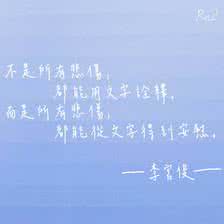 不是所有悲傷,
都能用文字詮釋,
而是所有悲傷,
都能從文字得到安慰。